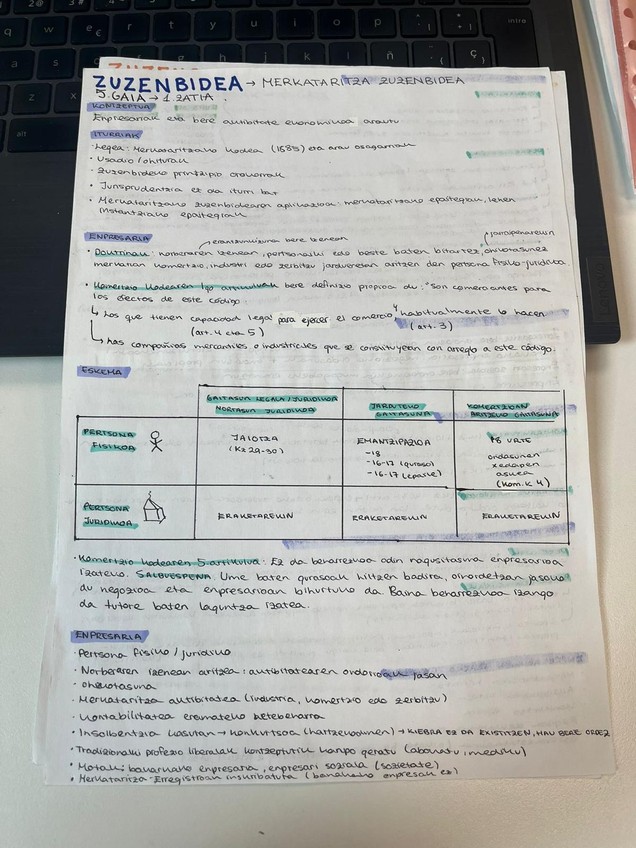 ZUZENBIDEA → MERKATARITZA ZUZENBIDEA
5. GAIA → 1. ZATIA.
KONTZEPTUA
Enpresariak eta bere aktibitate ekonomikoa arautu
ITURRIAK
· Legea: Merkataritzako kodea (1885) eta arau osagarriak
· Usadio / ohiturak
· Zuzenbideko printzipio orokorrak
· Jurisprudentzia ez da iturri bat
· Merkataritzako zuzenbidearen aplikazioa: merkataritzako epaitegiak, lehen
instantziako epaitegiak
ENPRESARIA
erantzunkizuna bere izenean
jarraipenarekin
· Doktrinak: norberaren izenean, pertsonalki edo beste baten bitartez, ohikotasunez
merkatuan komertzio, industri edo zerbitzu jardueretan aritzen den pertsona fisiko-juridikoa
· Komertzio kodearen 1go artikuluak bere definizio propioa du: "son comerciantes para
los efectos de este código:
↳ Los que tienen capacidad legal para ejercer el comercio y habitualmente lo hacen
(art. 4 eta 5) (art. 3)
↳ Las compañias mercantiles o industriales que se constituyean con arreglo a este código.
ESKEMA
GAITASUN LEGALA / JURIDIKOA
NORTASUN JURIDIKOA
JARDUTEKO
GAITASUNA
KOMERTZIOAN
ARITZEKO GAITASUNA
PERTSONA
FISIKOA
JAIOTZA
(KZ 29-30)
EMANTZIPAZIOA
-18
-16-17 (guraso)
-16-17 (epaile)
18 URTE
ondasunen
xedapen
askea
(Kom. K 4)
PERTSONA
JURIDIKOA
ERAKETAREKIN
ERAKETAREKIN
ERAKETAREKIN
· Komertzio kodearen 5 artikulua: Ez da beharrezkoa adin nagusitasuna enpresarioa
izateko. SALBUESPENA. Ume baten gurasoak hiltzen badira, oinordetzan jasoko
du negozioa eta enpresarioan bihurtuko da Baina beharrezkoa izango
da tutore baten laguntza izatea.
ENPRESARIA
· Pertsona fisiko / juridiko
· Norberaren izenean aritzea: aktibitatearen ondorioak jasan
· Ohikotasuna
· Merkataritza aktibitatea (industria, komertzio edo zerbitzu)
· Kontabilitatea eramateko betebeharra
· Insolbentzia kasutan → konkurtsoa (hartzekodunen) → KIEBRA EZ DA EXISTITZEN, HAU BERE ORDEZ
· Tradizionalki profesio liberalak kontzeptutik kanpo geratu (abokatu, mediku)
· Motak: banakako enpresaria, enpresari soziala (sozietate)
· Merkataritza-Erregistroan inskribatuta (banakako enpresak ez)